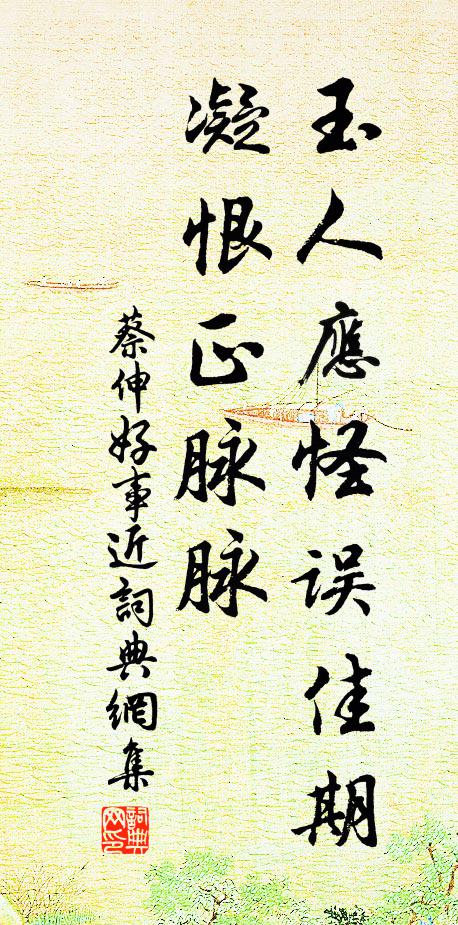 玉人應怪误佳期
凝恨正脉脉
蔡伸好事近詞典網集
詞典网印